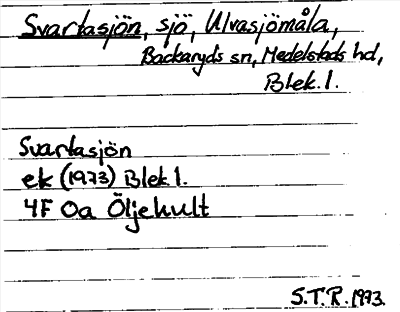 Svartasjön, sjö, Ulvasjömåla,
Backaryds sn, Medelstads hd,
Blek. l.
Svartasjön
ek (1973) Blek l.
4F 0a Öljehult
S.T.R. 1973.